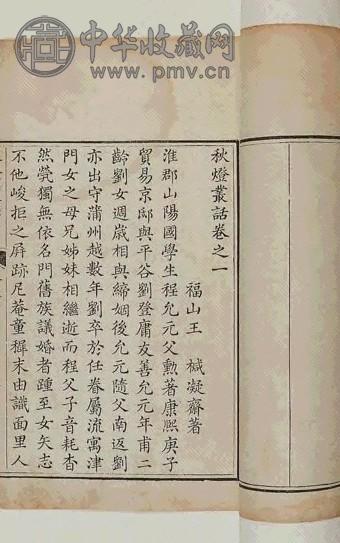 中华收藏网
www.pmv.cn
秋燈叢話卷之一
福山王 椷凝齋著
淮郡山陽國學生程允元父勲著康熙庚子
貿易京邸與平谷劉登庸友善允元年甫二
齡劉女週歲相與締姻後允元隨父南返劉
亦出守蒲州越數年劉卒於任眷屬流寓津
門女之母兄姊妹相繼逝而程父子音耗杳
然煢獨無依名門舊族議婚者踵至女矢志
不他峻拒之屛跡尼菴童穉末由識面里人